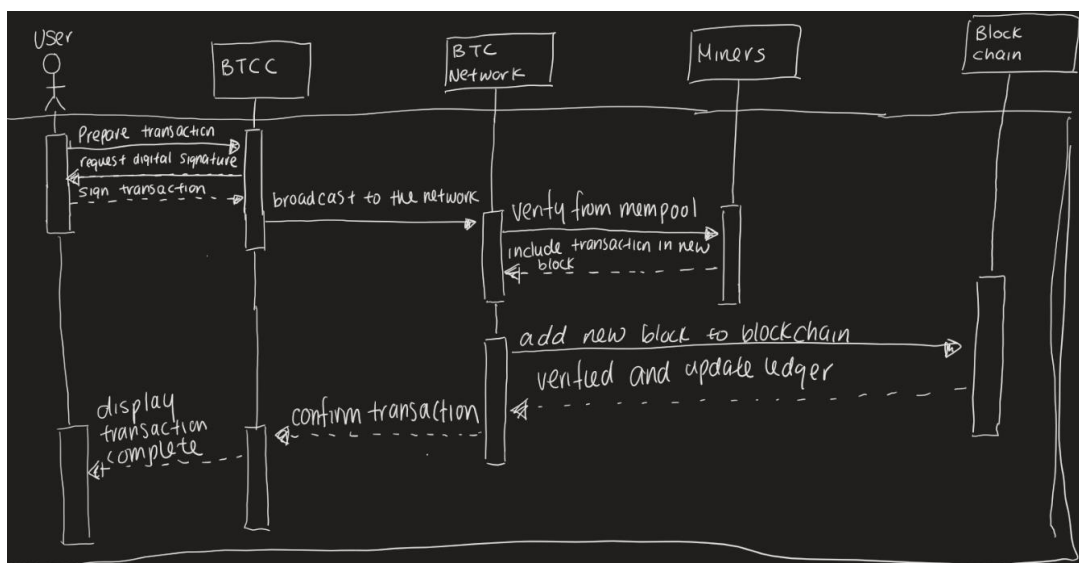 User
BTCC
BTC
Network
Miners
Block
chain
Prepare transaction
request digital signature
sign transaction
broadcast to the network
verify from mempool
include transaction in new
block
add new block to blockchain
verified and update ledger
confirm transaction
display
transaction
complete